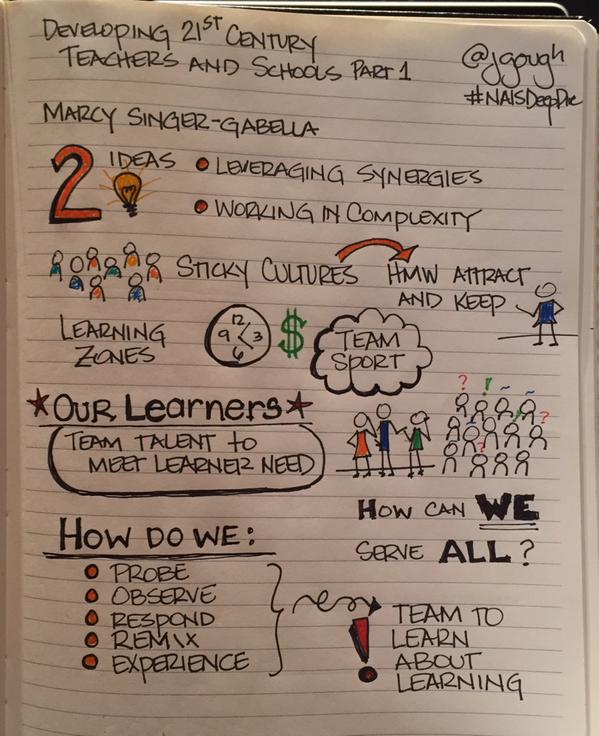 DEVELOPING 21ST CENTURY
TEACHERS AND SCHOOLS PART 1
@jgough
#NAISDeepDive
MARCY SINGER-GABELLA
2 IDEAS
• LEVERAGING SYNERGIES
• WORKING IN COMPLEXITY
STICKY CULTURES
HMW ATTRACT
AND KEEP
LEARNING
ZONES
12
9 3
6
$
TEAM
SPORT
★OUR Learners★
TEAM TALENT to
MEET LEARNER NEED
? ! ~ ~
?
?
HOW CAN WE
SERVE ALL?
HOW DO WE:
• PROBE
• OBSERVE
• RESPOND
• REMIX
• EXPERIENCE
! TEAM TO
LEARN
ABOUT
LEARNING